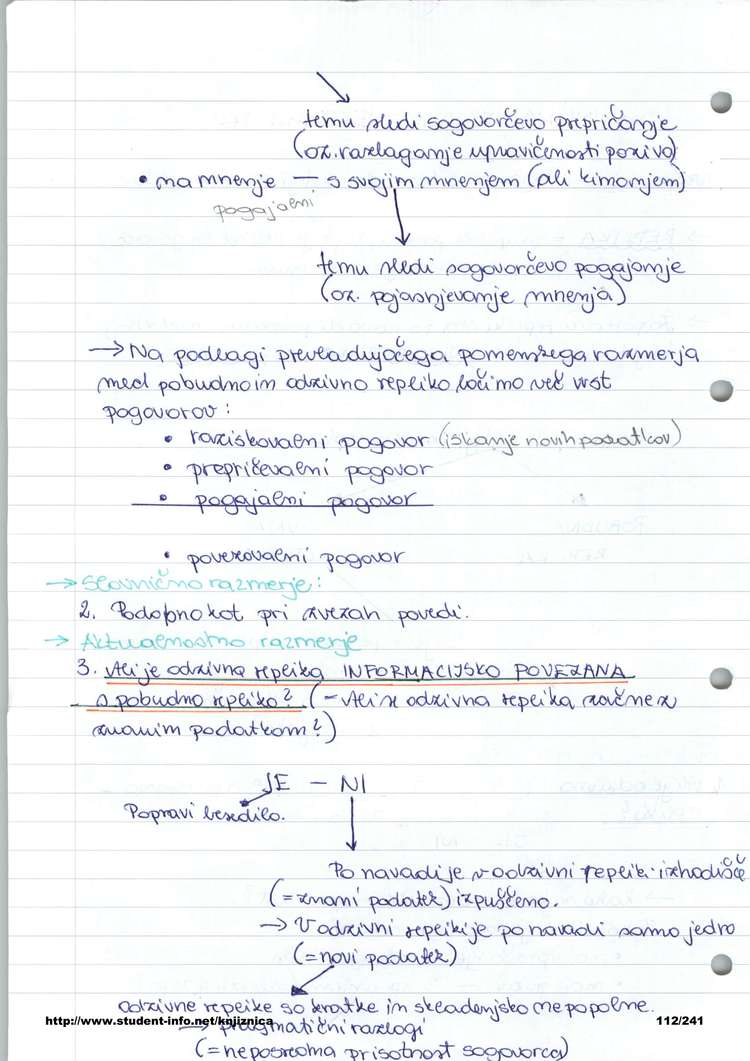 temu sledi sogovorčevo prepričanje
(oz. razlaganje upravičenosti poziva)
• na mnenje — s svojim mnenjem (ali kimanjem)
pogajalni
temu sledi sogovorčevo pogajanje
(oz. pojasnjevanje mnenja)
→ Na podlagi prevladujočega pomenskega razmerja
med pobudno in odzivno repliko ločimo več vrst
pogovorov:
• raziskovalni pogovor (iskanje novih podatkov)
• prepričevalni pogovor
• pogajalni pogovor
• povezovalni pogovor
→ Slovnično razmerje:
2. Podobno kot pri zvezah povedi.
→ Aktualnostno razmerje
3. Ali je odzivna replika INFORMACIJSKO POVEZANA
s pobudno repliko? (– Ali se odzivna replika začne z
znanim podatkom?)
JE — NI
Popravi besedilo.
Po navadi je v odzivni replik. izhodišče
(=znani podatek) izpuščeno.
→ V odzivni repliki je po navadi samo jedro
(=novi podatek)
Odzivne replike so kratke in skladenjsko nepopolne.
http://www.student-info.net/knjiznica 112/241
→ pragmatični razlogi
(=neposredna prisotnost sogovorca)